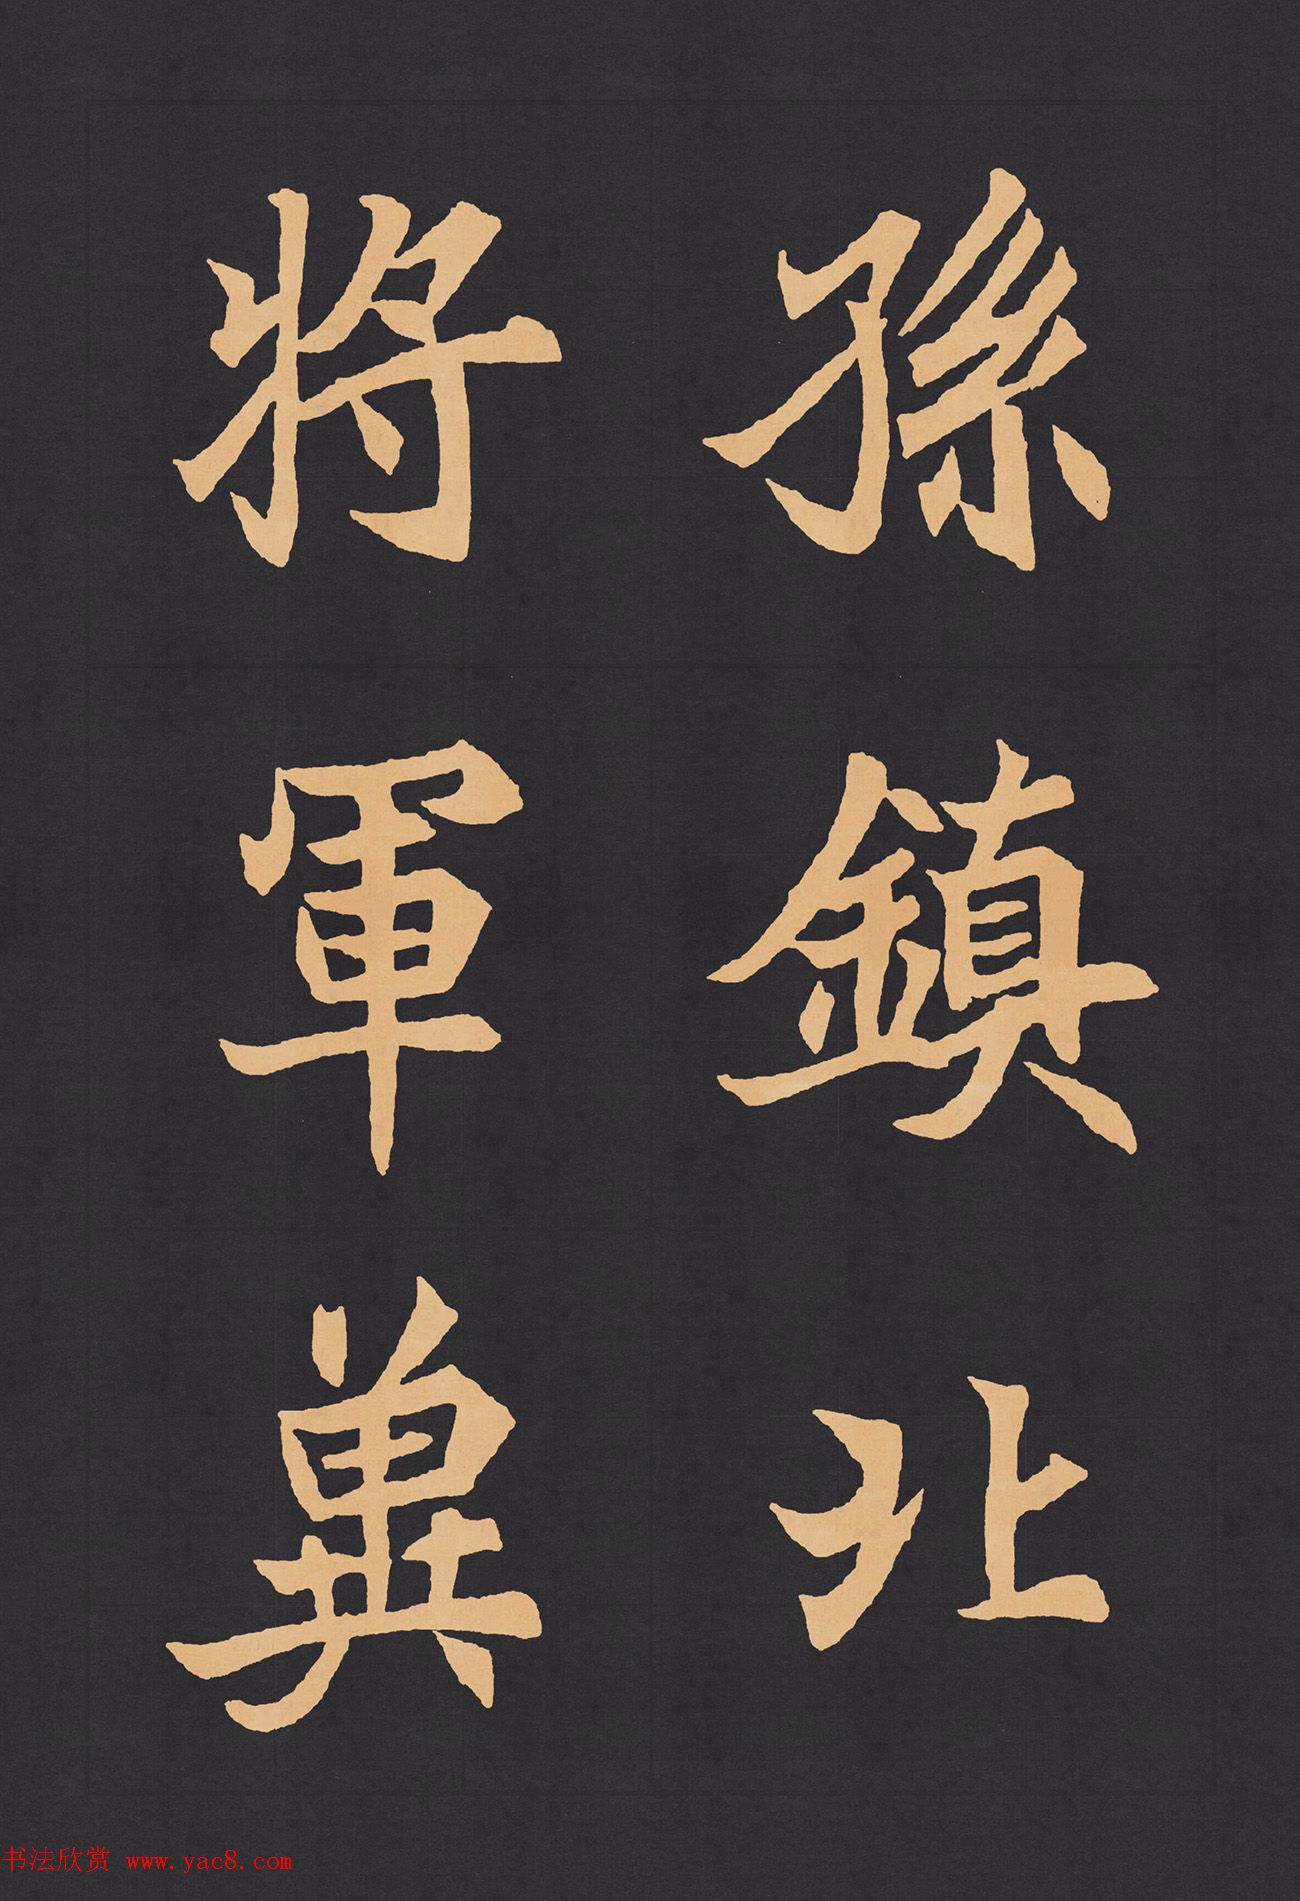 孫鎮北
將軍冀
书法欣赏 www.yac8.com